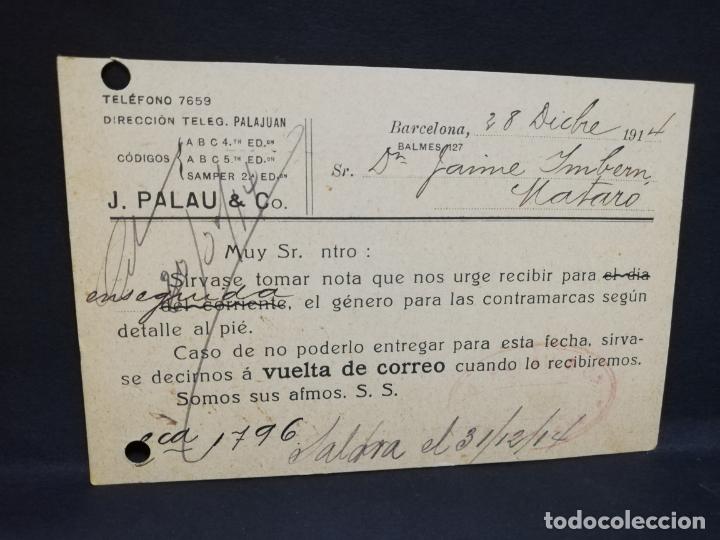 TELÉFONO 7659
DIRECCIÓN TELEG. PALAJUAN
CÓDIGOS
A B C 4.TH ED.ON
A B C 5.TH ED.ON
SAMPER 2.ª ED.ON
J. PALAU & Co.
Barcelona, 28 Dicbre 1914
BALMES 127
Sr. Dn Jaime Imbern
Mataro
Muy Sr. ntro :
Sírvase tomar nota que nos urge recibir para el día
enseguida del corriente, el género para las contramarcas según
detalle al pié.
Caso de no poderlo entregar para esta fecha, sirva-
se decirnos á vuelta de correo cuando lo recibiremos.
Somos sus afmos. S. S.
1796
el 31/12/14
todocoleccion